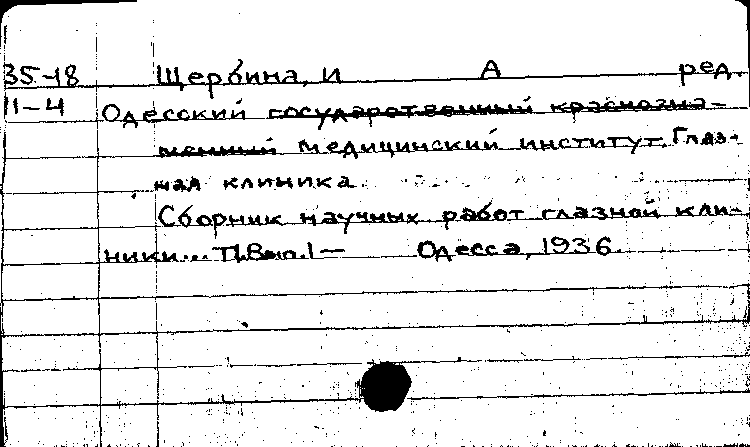 35-18 Щербина, И А ред.
11-4 Одесский государственный краснозна-
менный медицинский институт. Глаз-
ная клиника
Сборник научных работ глазной кли-
ники... Т.1. Вып.1— Одесса, 1936.